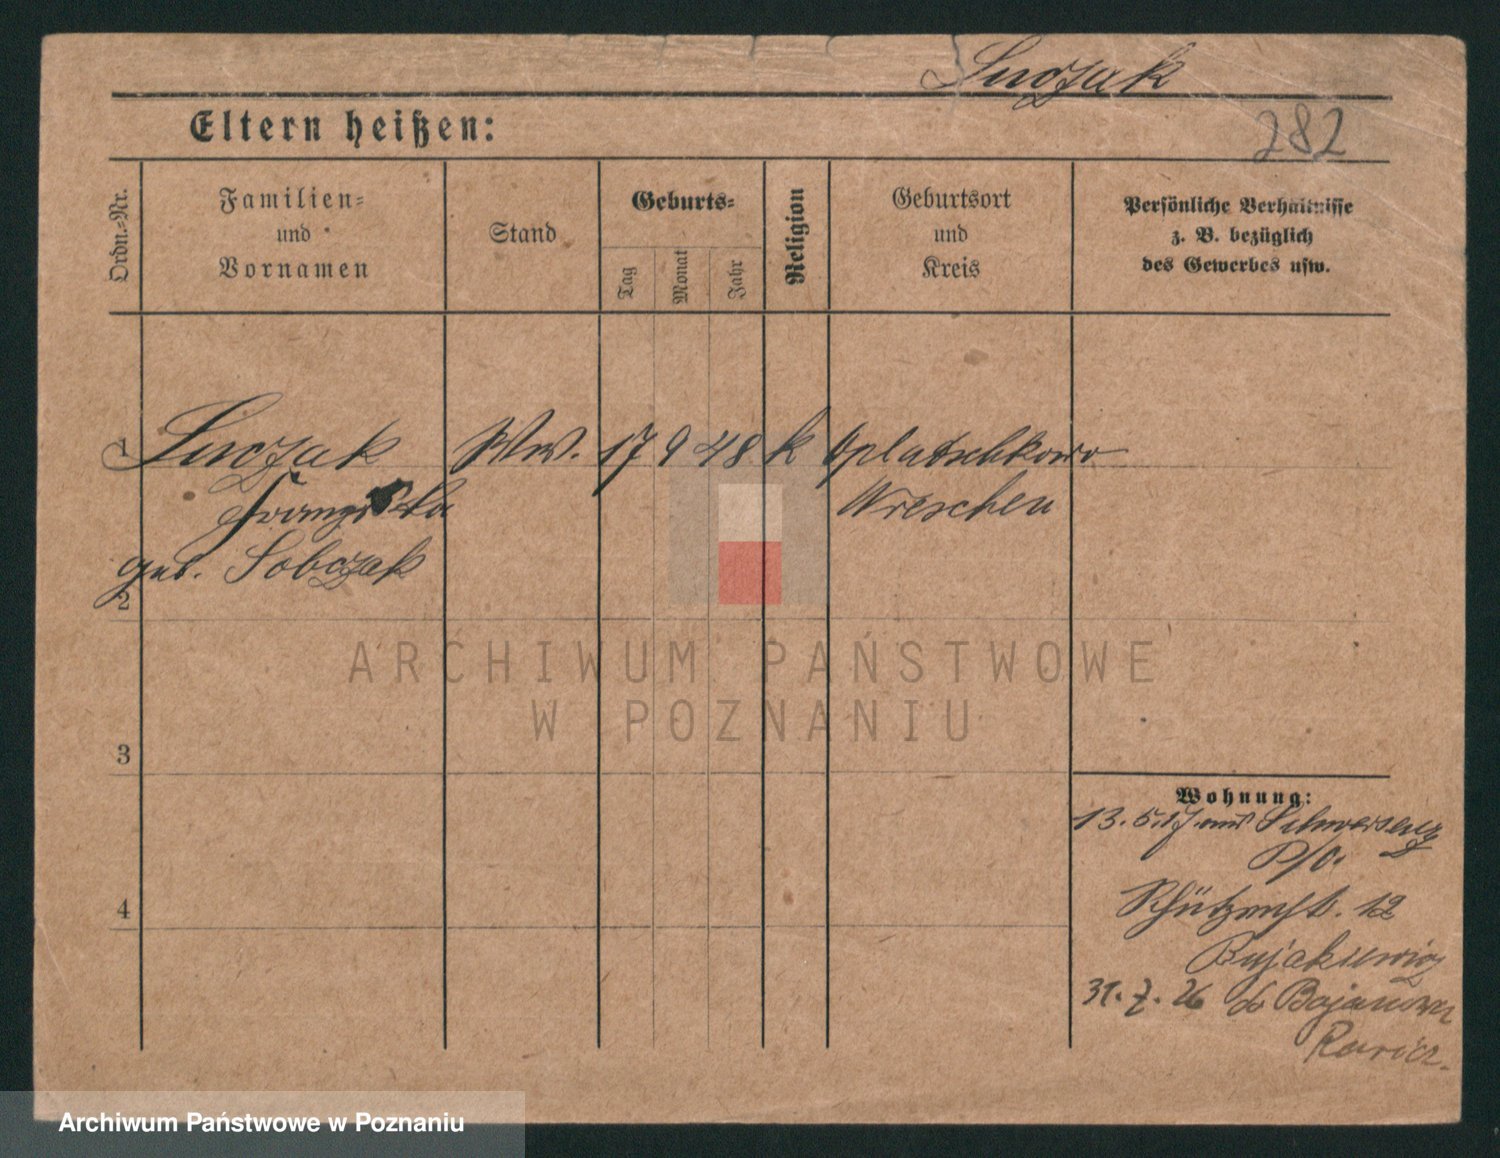 Luczak
282
Eltern heißen:
Ordn.-Nr.
Familien-
und
Vornamen
Stand
Geburts-
Tag
Monat
Jahr
Religion
Geburtsort
und
Kreis
Persönliche Verhältnisse
z. B. bezüglich
des Gewerbes usw.
1 Luczak Ww. 17 9 48 k Oplatschkowo
Franziska Wreschen
geb. Sobczak
2
ARCHIWUM PAŃSTWOWE
W POZNANIU
3
Wohnung:
13. 5. 17. aus Schwersenz
P/O.
Schützenst. 12
Bujakiewicz
31. 7. 26 do Bojanowa
Rawicz.
4
Archiwum Państwowe w Poznaniu